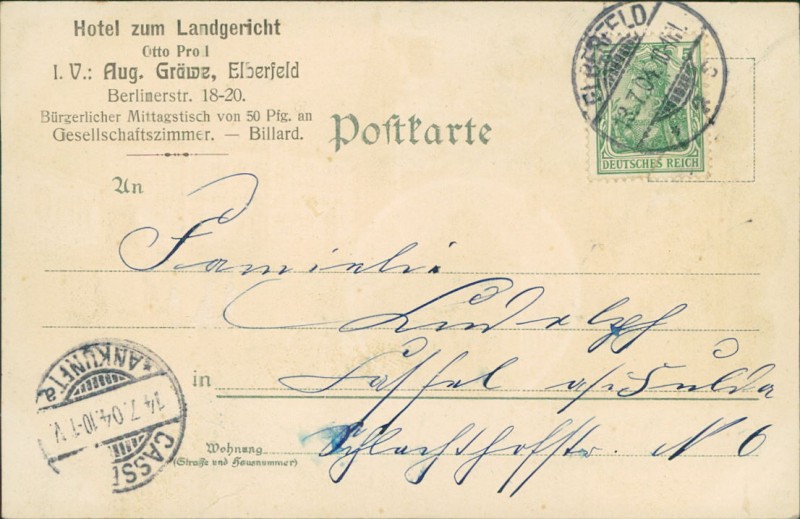 Hotel zum Landgericht
Otto Proll
I. V.: Aug. Gräwe, Elberfeld
Berlinerstr. 18-20.
Bürgerlicher Mittagstisch von 50 Pfg. an
Gesellschaftszimmer. — Billard.
Postkarte
ELBERFELD
13.7.04
DEUTSCHES REICH
An
Familie
Ludolph
in Cassel a/Fulda
Wohnung Schlachthofstr. N 6
(Straße und Hausnummer)
CASSEL
14.7.04.10-1V.
*ANKUNFT a